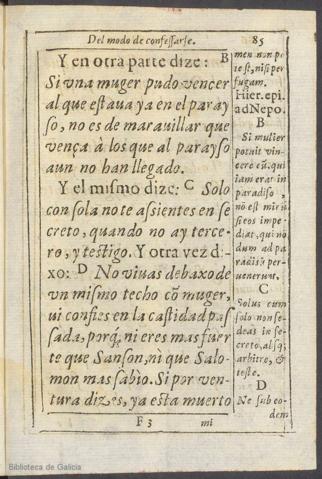 Del modo de confessarse. 85
Y en otra parte dize: B
Si vna muger pudo vencer
al que estaua ya en el paray
so, no es de marauillar que
vença à los que al parayso
aun no han llegado.
Y el mismo dize: C Solo
con sola no te assientes en se
creto, quando no ay terce-
ro, y testigo. Y otra vez di-
xo: D No viuas debaxo de
vn mismo techo cõ muger,
ui confies en la castidad pas
sada, porq̃ ni eres mas fuer
te que Sanson, ni que Salo-
mon mas sabio. Si por ven-
tura dizes, ya esta muerto
F 3 mi
men non po
test, nisi per
fugam.
Hier. epi.
ad Nepo.
B
Si mulier
potuit vin-
cere eũ, qui
iam erat in
paradiso,
nõ est mirũ
si eos impe-
diat, qui nõ
dum ad pa
radisũ per-
uenerunt.
C
Solus cum
solo non se-
deas in se-
creto, absq;
arbitro, &
teste.
D
Ne sub eo-
dem
Biblioteca de Galicia